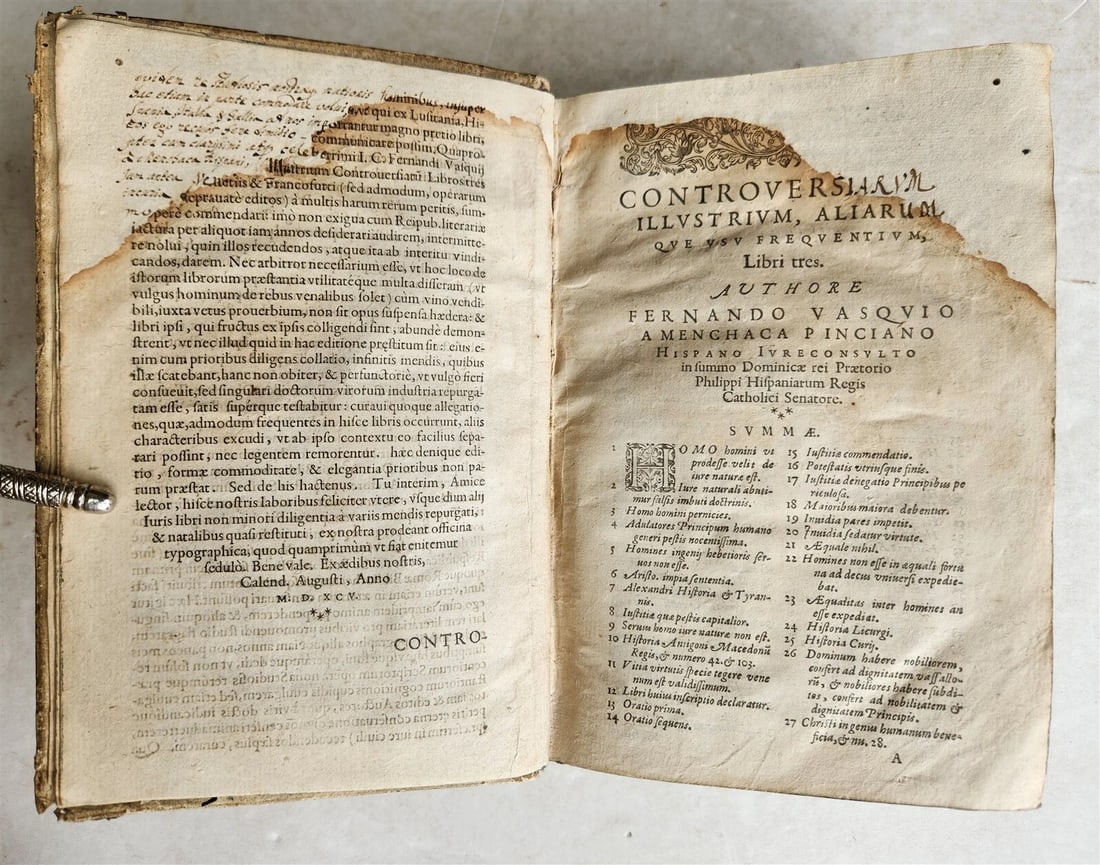 hominibus, insuper
vt qui ex Lusitania, Hi-
portantur magno pretio libri,
communicare possim. Quapro-
celeberrimi I. C. Fernandi Vasquij
Illustrium Controuersiarũ Libros tres
Venetiis & Francofurti (sed admodum, operarum
deprauatè editos) à multis harum rerum peritis, sum-
mopere commendari imò non exigua cum Reipub. literariæ
iactura per aliquot iam annos desiderari audirem, intermitte-
re nolui, quin illos recudendos, atque ita ab interitu vindi-
candos, darem. Nec arbitror necessarium esse, vt hoc loco de
istorum librorum præstantia vtilitatéque multa disseram (vt
vulgus hominum de rebus venalibus solet) cùm vino vendi-
bili, iuxta vetus prouerbium, non sit opus suspensa hædera: &
libri ipsi, qui fructus ex ipsis colligendi sint, abundè demon-
strent, vt nec illud quid in hac editione præstitum sit: eius e-
nim cum prioribus diligens collatio, infinitis mendis, quibus
illæ scatebant, hanc non obiter, & perfunctoriè, vt vulgò fieri
consueuit, sed singulari doctorum virorum industria repurga-
tam esse, satis supérque testabitur: curaui quoque allegatio-
nes, quæ, admodum frequentes in hisce libris occurrunt, aliis
characteribus excudi, vt ab ipso contextu eo facilius sepa-
rari possint, nec legentem remorentur. hæc denique edi-
tio, formæ commoditate, & elegantia prioribus non pa-
rum præstat. Sed de his hactenus. Tu interim, Amice
lector, hisce nostris laboribus feliciter vtere, vsque dum alij
Iuris libri non minori diligentiâ à variis mendis repurgati,
& natalibus quasi restituti, ex nostra prodeant officina
typographica, quod quamprimùm vt fiat enitemur
sedulò. Bene vale. Ex ædibus nostris,
Calend. Augusti, Anno
M. D. XCV.
CONTRO-
CONTROVERSIARVM
ILLVSTRIVM, ALIARUM
QVE VSV FREQVENTIVM,
Libri tres.
AVTHORE
FERNANDO VASQVIO
A MENCHACA PINCIANO
HISPANO IVRECONSVLTO
in summo Dominicæ rei Prætorio
Philippi Hispaniarum Regis
Catholici Senatore.
SVMMÆ.
1 HOMO homini vt
prodesse velit de
iure naturæ est.
2 Iure naturali abuti-
mur falsis imbuti doctrinis.
3 Homo homini pernicies.
4 Adulatores Principum humano
generi pestis nocentissima.
5 Homines ingenij hebetioris ser-
uos non esse.
6 Aristo. impia sententia.
7 Alexandri Historia & Tyran-
nis.
8 Iustitiæ quæ pestis capitalior.
9 Seruus homo iure naturæ non est.
10 Historia Antigoni Macedonũ
Regis, & numero 42. & 103.
11 Vitia virtutis specie tegere vene
num est validissimum.
12 Libri huius inscriptio declaratur.
13 Oratio prima.
14 Oratio sequens.
15 Iustitiæ commendatio.
16 Potestatis vtriusque finis.
17 Iustitiæ denegatio Principibus pe
riculosa.
18 Maioribus maiora debentur.
19 Inuidia pares impetit.
20 Inuidia sedatur virtute.
21 Æquale nihil.
22 Homines non esse in æquali fortu
na ad decus vniuersi expedie-
bat.
23 Æqualitas inter homines an
esse expediat.
24 Historia Licurgi.
25 Historia Curij.
26 Dominum habere nobiliorem,
confert ad dignitatem vassallo-
rũ, & nobiliores habere subdi-
tos, confert ad nobilitatem &
dignitatem Principis.
27 Christi in genus humanum bene-
ficia, & nu. 28.
A